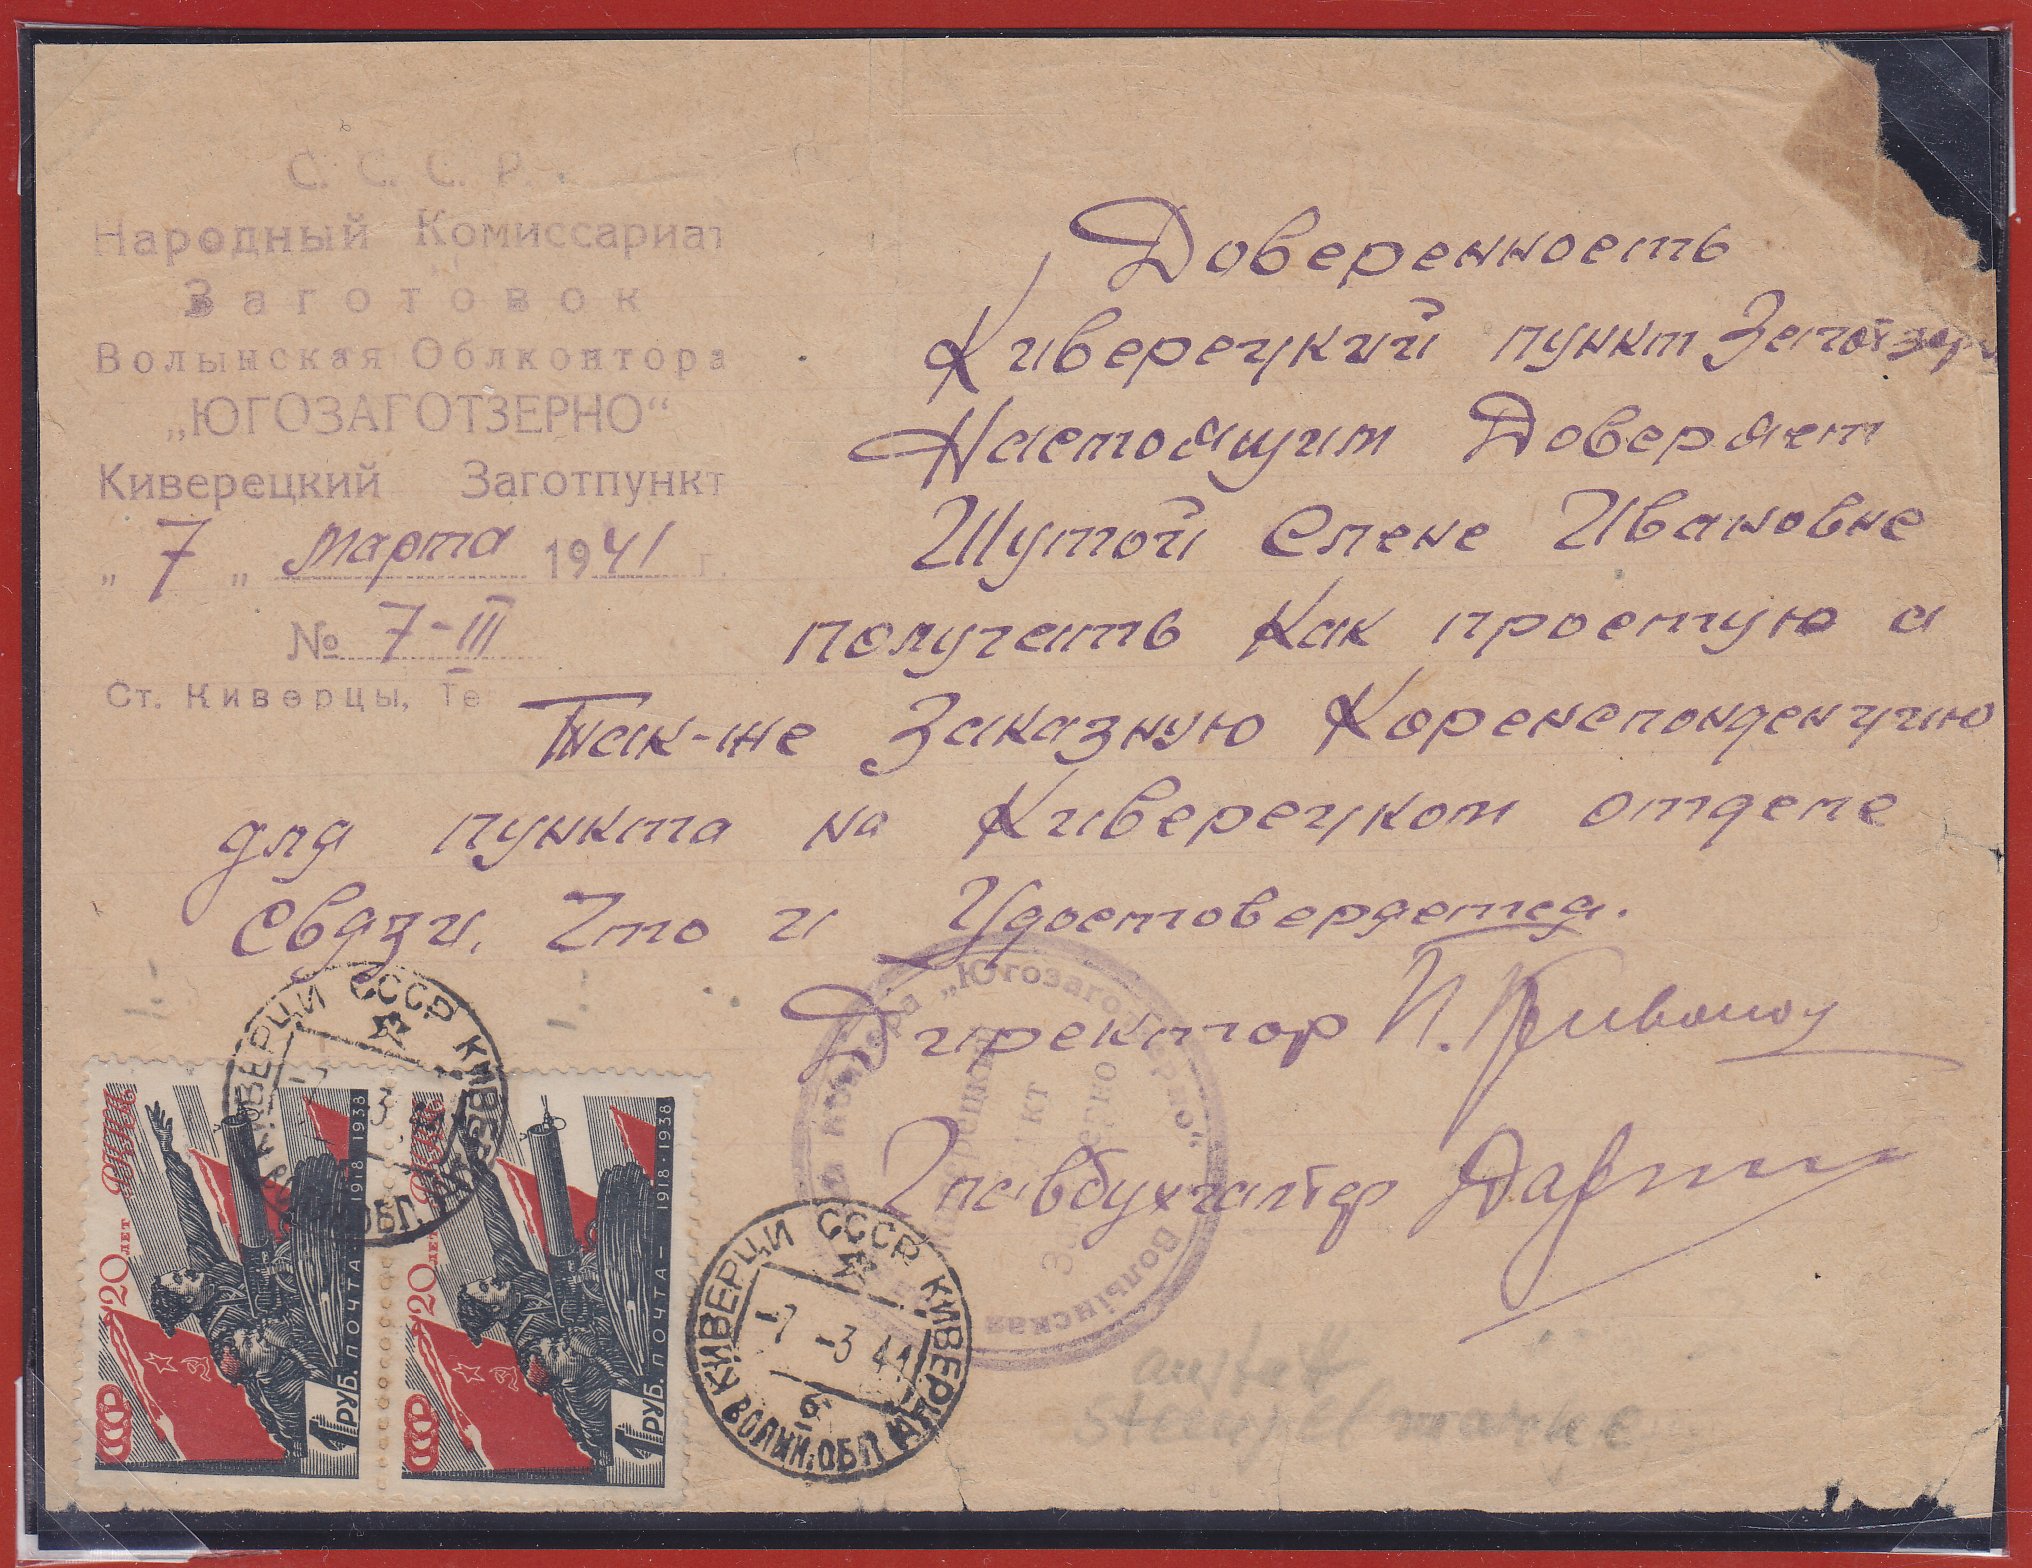 С. С. С. Р.
Народный Комиссариат
Заготовок
Волынская Облконтора
„ЮГОЗАГОТЗЕРНО“
Киверецкий Заготпункт
„ 7 „ марта 1941 г.
№ 7-III
Ст. Киверцы,
Доверенность
Киверецкий пункт Заготзерно
Настоящим Доверяет
Шутой Елене Ивановне
получать Как простую а
Так-же Заказную Коренспонденцию
для пункта на Киверецком отделе
Связи, Что и Удостоверяется.
Директор
Главбухгалтер
„Югозаготзерно“
Волынская
КИВЕРЦИ СССР КИВЕРЦЫ
ВОЛИН.ОБЛ.
КИВЕРЦИ СССР КИВЕРЦЫ
-7 -3 41
б
ВОЛИН.ОБЛ
СССР 20 ЛЕТ РККА
1 РУБ. ПОЧТА - 1918 - 1938
СССР 20 ЛЕТ РККА
1 РУБ. ПОЧТА - 1918 - 1938
anstatt
Stempelmarke